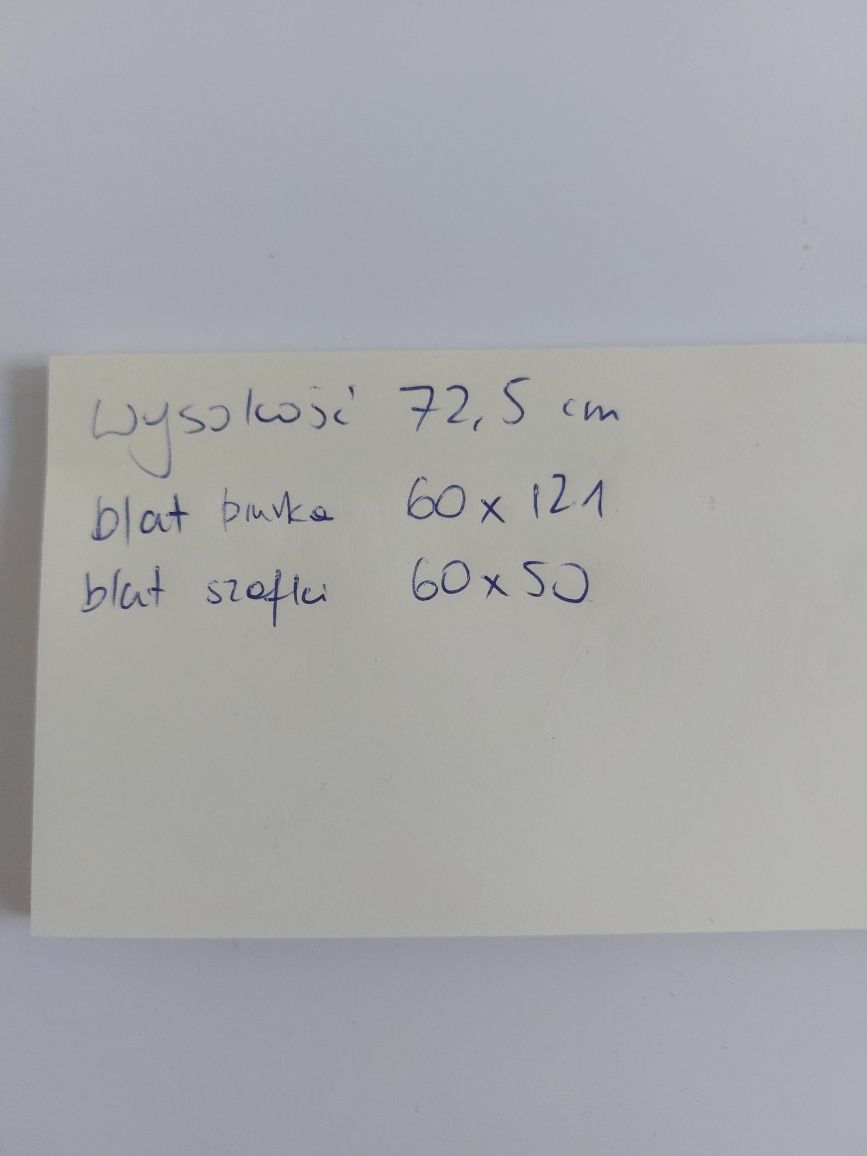 wysokość 72,5 cm
blat biurka 60 x 121
blat szafki 60 x 50